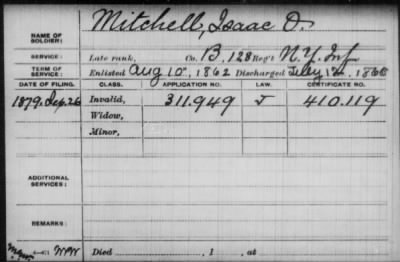 NAME OF SOLDIER: Mitchell, Isaac D.
SERVICE: Late rank, Co. B, 128 Reg't N.Y. Inf
TERM OF SERVICE: Enlisted Aug 10, 1862 Discharged July 12, 1865
DATE OF FILING. CLASS. APPLICATION NO. LAW. CERTIFICATE NO.
1879, Sep. 26 Invalid, 311.949 J 410.119
Widow,
Minor,
ADDITIONAL SERVICES:
REMARKS:
Died , 1 , at